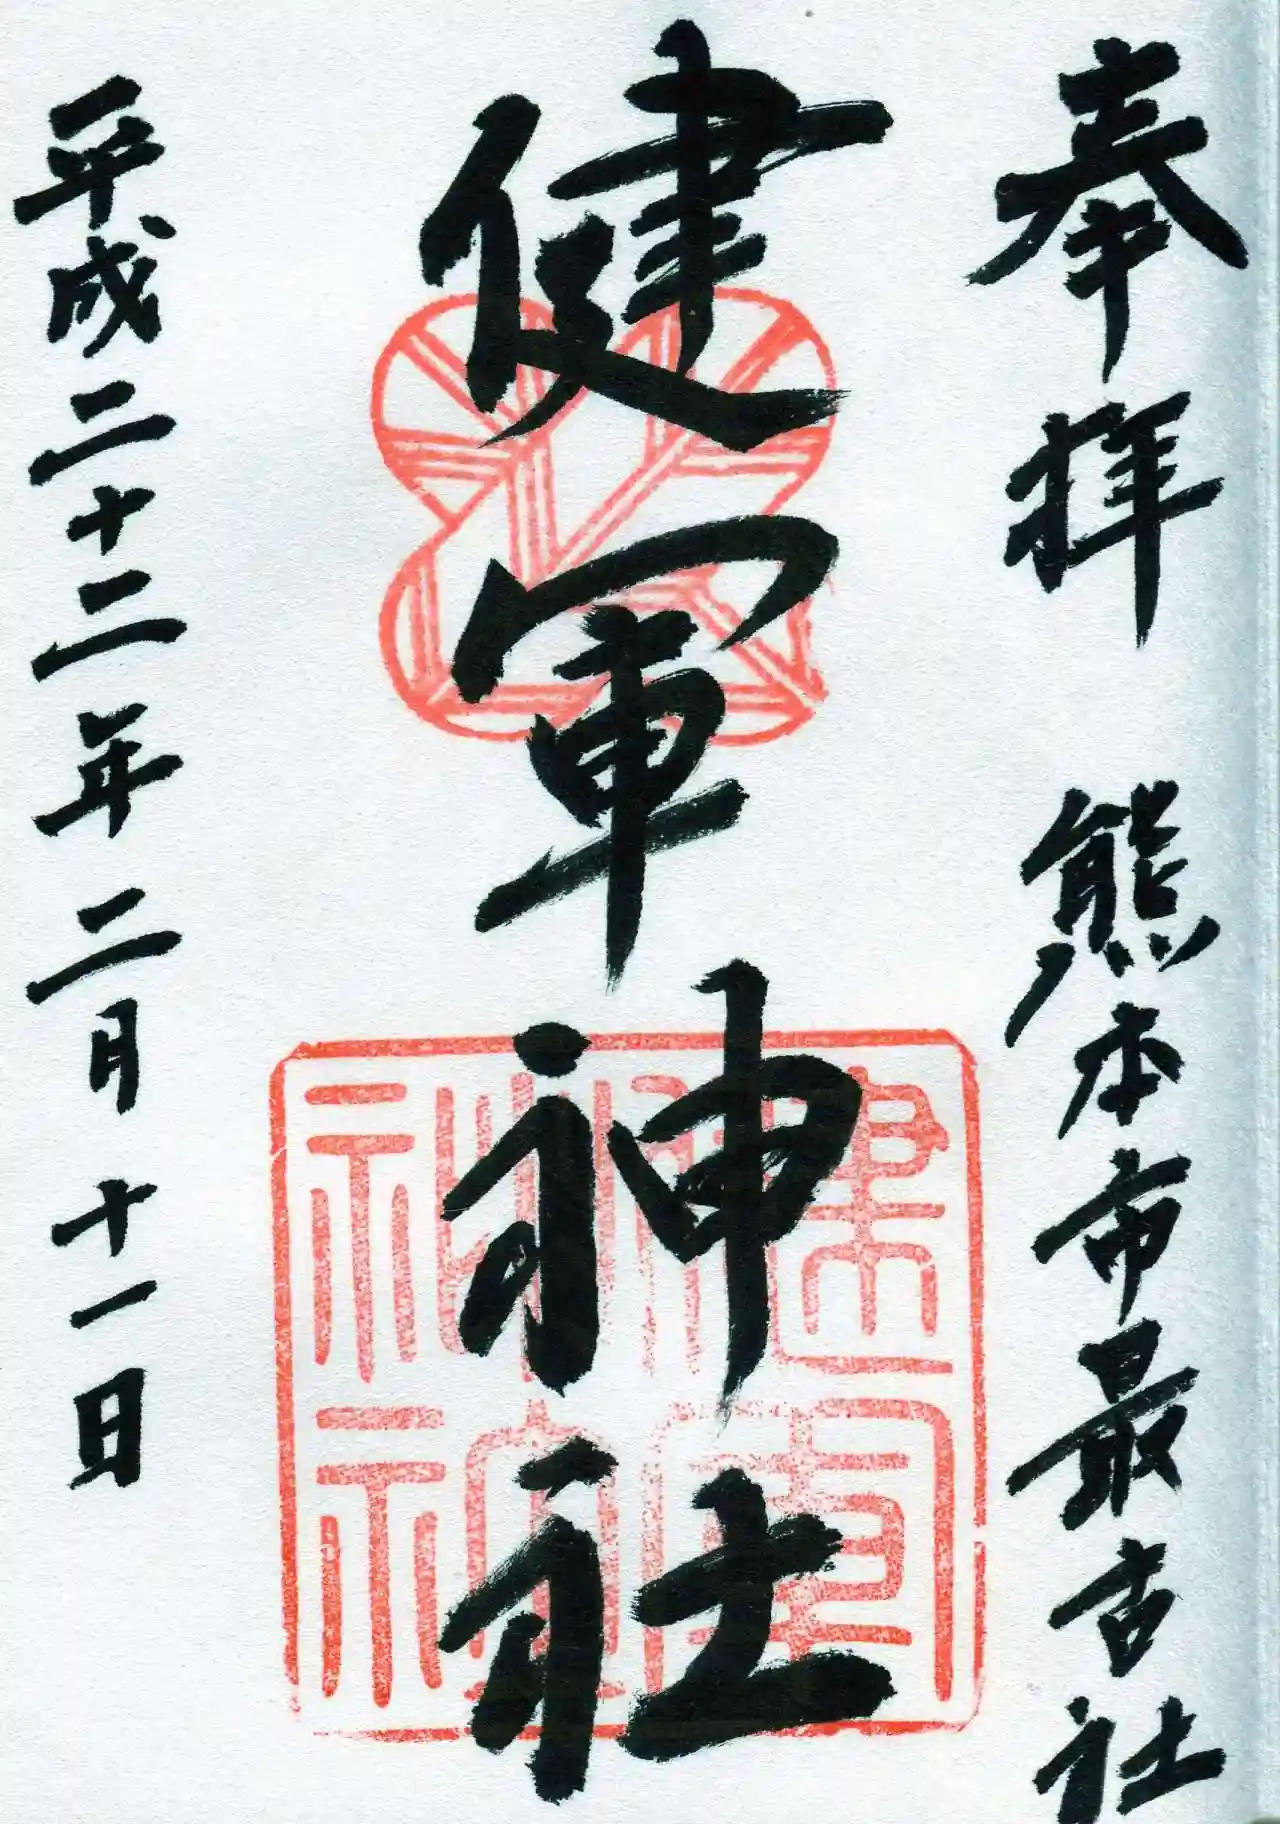 奉拝　熊本市最古社
健軍神社
平成二十二年二月十一日